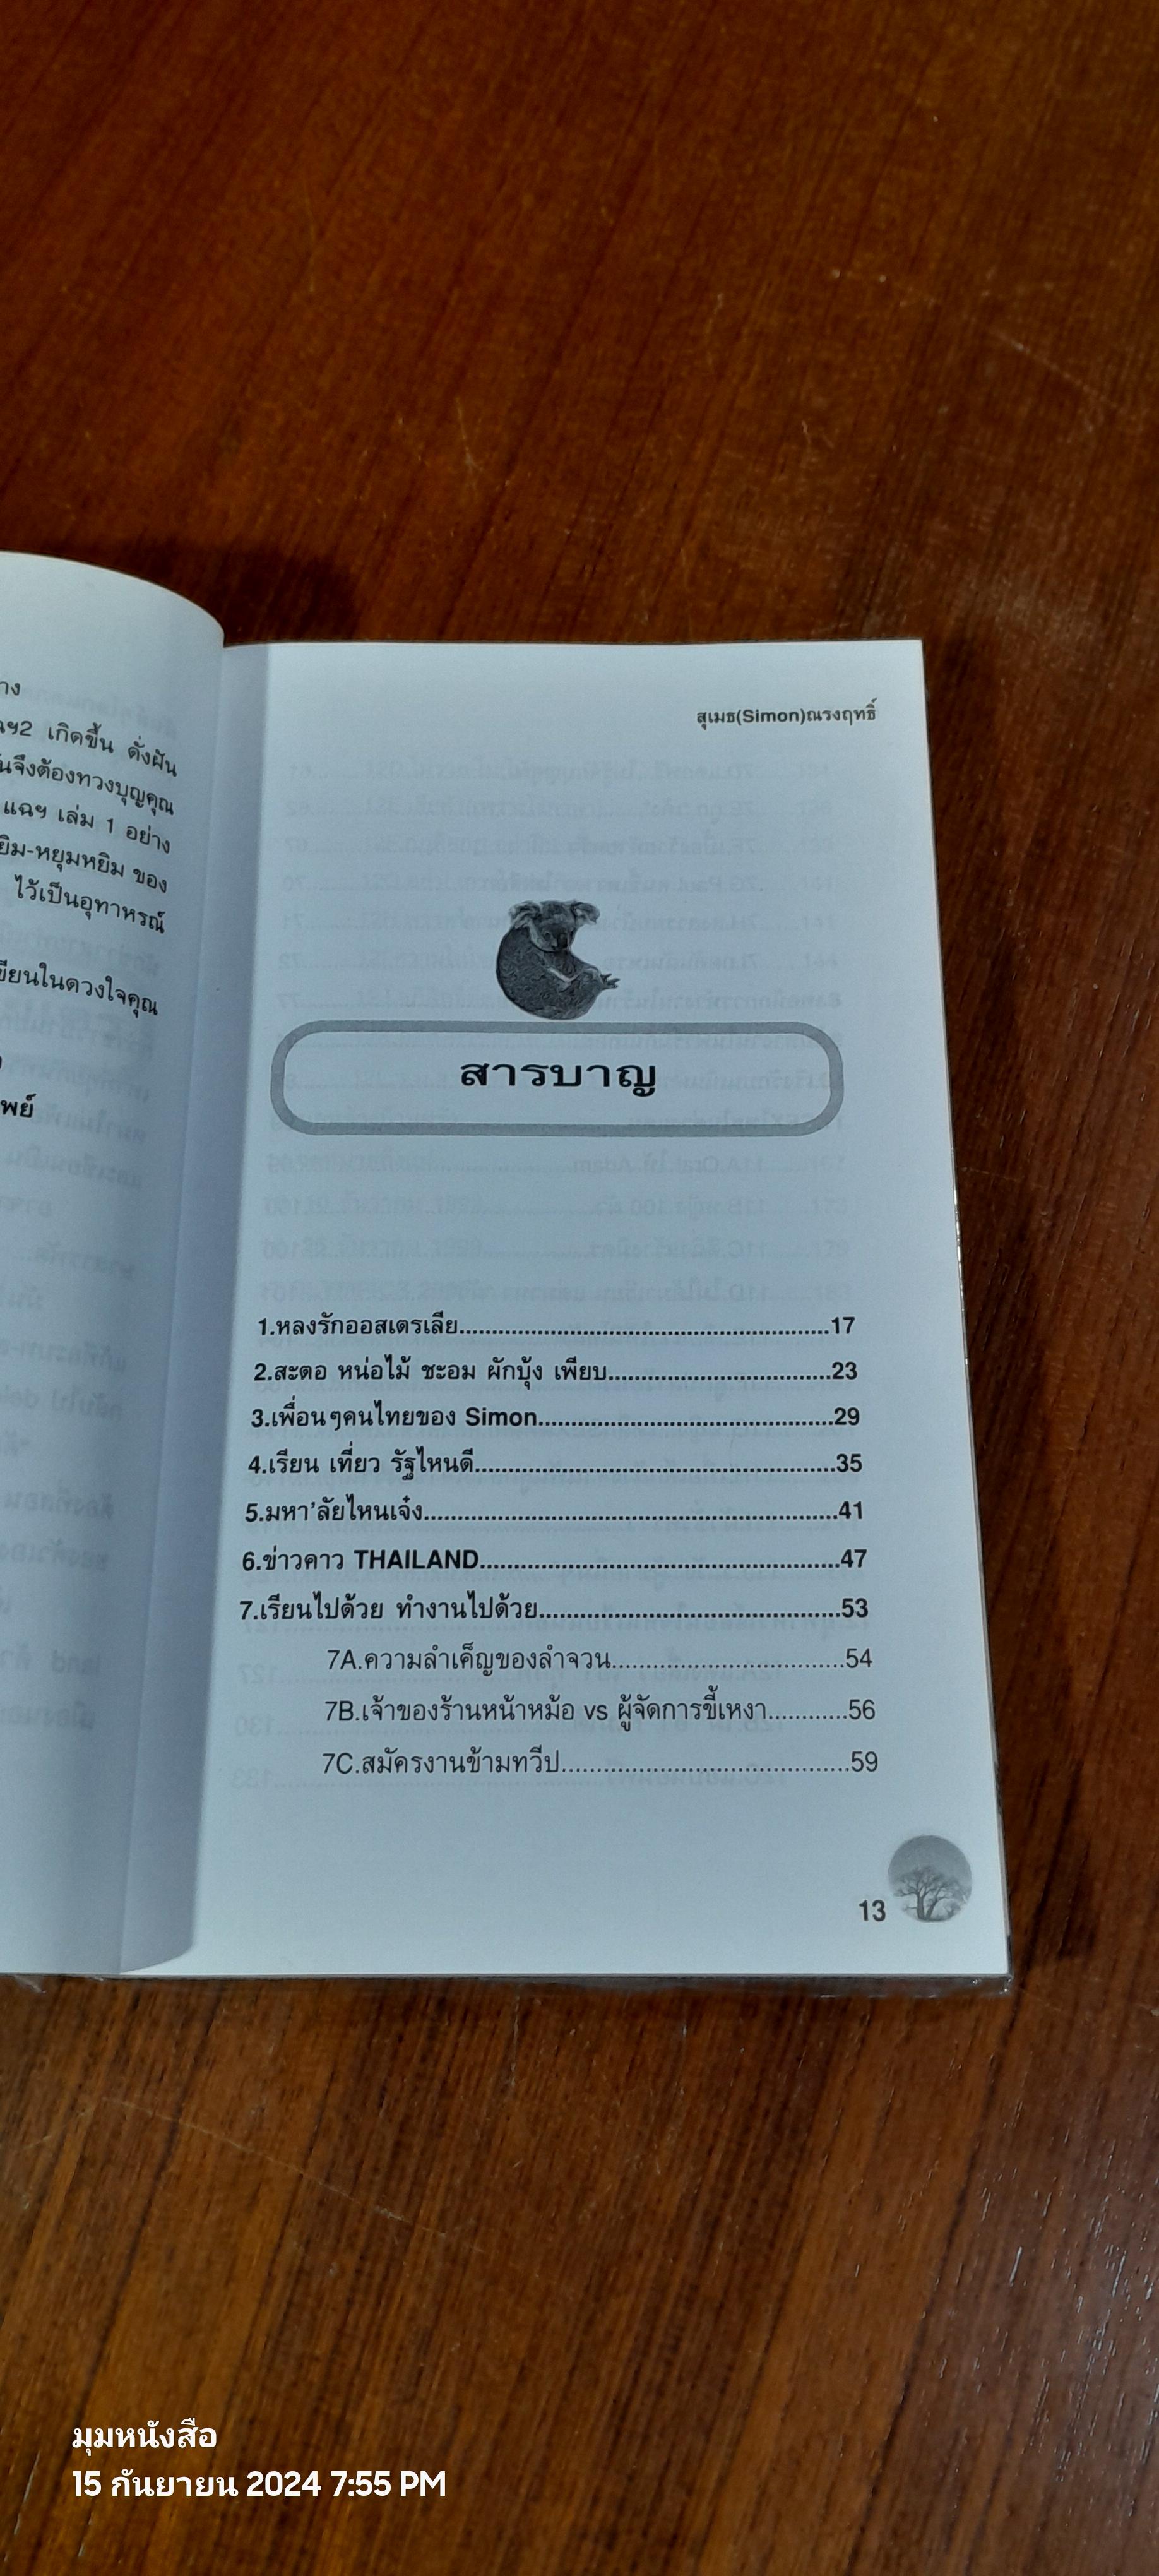 าง
ฉฯ2 เกิดขึ้น ดั่งฝัน
นจึงต้องทวงบุญคุณ
แฉฯ เล่ม 1 อย่าง
ยิม-หยุมหยิม ของ
ไว้เป็นอุทาหรณ์
ขียนในดวงใจคุณ
พย์
สุเมธ(Simon)ณรงฤทธิ์
สารบาญ
1.หลงรักออสเตรเลีย.......................................................17
2.สะตอ หน่อไม้ ชะอม ผักบุ้ง เพียบ.................................23
3.เพื่อนๆคนไทยของ Simon............................................29
4.เรียน เที่ยว รัฐไหนดี.....................................................35
5.มหา'ลัยไหนเจ๋ง............................................................41
6.ข่าวคาว THAILAND....................................................47
7.เรียนไปด้วย ทำงานไปด้วย...........................................53
7A.ความลำเค็ญของลำจวน.................................54
7B.เจ้าของร้านหน้าหม้อ vs ผู้จัดการขี้เหงา............56
7C.สมัครงานข้ามทวีป.........................................59
13
มุมหนังสือ
15 กันยายน 2024 7:55 PM